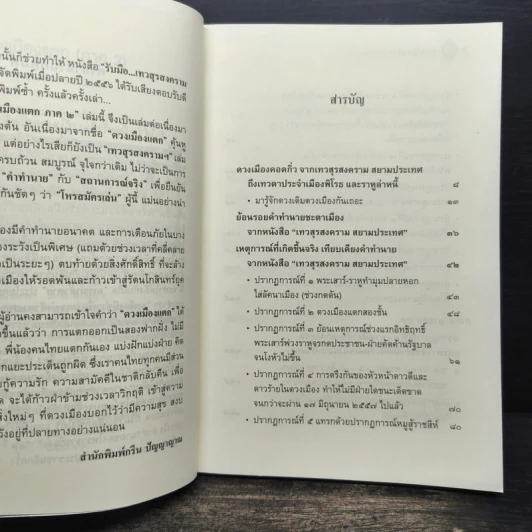 นั้นก็ช่วยทำให้ หนังสือ "รับมือ...เทวสุรสงคราม
จัดพิมพ์เมื่อปลายปี ๒๕๕๖ ได้รับเสียงตอบรับดี
พิมพ์ซ้ำ ครั้งแล้วครั้งเล่า...
เมืองแตก ภาค ๒" เล่มนี้ จึงเป็นเล่มต่อเนื่องมา
งต้น อันเนื่องมาจากชื่อ "ดวงเมืองแตก" คุ้นหู
แต่อย่างไรเสียก็ยังเป็น "เทวสุรสงครามฯ" เล่ม
ครบถ้วน สมบูรณ์ จุใจกว่าเดิม ไม่ว่าจะเป็นการ
"คำทำนาย" กับ "สถานการณ์จริง" เพื่อยืนยัน
กันชัดๆ ว่า "โหรสมัครเล่น" ผู้นี้ แม่นอย่างน่า
งมีคำทำนายอนาคต และการเตือนภัยในบาง
งระวังเป็นพิเศษ (แถมด้วยช่วงเวลาที่คลี่คลาย
เป็นระยะๆ) ตบท้ายด้วยสิ่งศักดิ์สิทธิ์ ที่จะล้าง
งเมืองให้รอดพ้นและก้าวเข้าสู่รัตนโกสินทร์ยุค
ผู้อ่านคงสามารถเข้าใจคำว่า "ดวงเมืองแตก" ได้
ขึ้นแล้วว่า การแตกออกเป็นสองฟากฝั่ง ไม่มี
พี่น้องคนไทยแตกกันเอง แบ่งฝักแบ่งฝ่าย คิด
แยกประเด็นถูกผิด ซึ่งเราคนไทยทุกคนมีส่วน
งกู้ความรัก ความสามัคคีในชาติกลับคืน เพื่อ
จะได้ก้าวฝ่าข้ามช่วงเวลาวิกฤติ เข้าสู่ความ
สิ่งใหม่ๆ ที่ดวงเมืองบอกไว้ว่ามีความสุข สงบ
วังอยู่ที่ปลายทางอย่างแน่นอน
สำนักพิมพ์กรีน ปัญญาญาณ
สารบัญ
ดวงเมืองคอดกิ่ว จากเทวสุรสงคราม สยามประเทศ
ถึงเทวดาประจำเมืองพิโรธ และราหูล่าหนี้ ๘
• มารู้จักดวงเดิมดวงเมืองกันเถอะ ๑๓
ย้อนรอยคำทำนายชะตาเมือง
จากหนังสือ "เทวสุรสงคราม สยามประเทศ" ๓๖
เหตุการณ์ที่เกิดขึ้นจริง เทียบเคียงคำทำนาย
จากหนังสือ "เทวสุรสงคราม สยามประเทศ" ๔๒
• ปรากฏการณ์ที่ ๑ พระเสาร์-ราหูทำมุมปลายหอก
ใส่ลัคนาเมือง (ช่วงกดดัน) ๔๓
• ปรากฏการณ์ที่ ๒ ดวงเมืองแตกสองชั้น ๔๘
• ปรากฏการณ์ที่ ๓ ย้อนเหตุการณ์ช่วงแรกอิทธิฤทธิ์
พระเสาร์พ่วงราหูจรกดประชาชน-ฝ่ายคัดค้านรัฐบาล
จนโงหัวไม่ขึ้น ๖๑
• ปรากฏการณ์ที่ ๔ การตรึงกันของหัวหน้าดาวดีและ
ดาวร้ายในดวงเมือง ทำให้ไม่มีฝ่ายใดชนะเด็ดขาด
จนกว่าจะผ่าน ๑๗ มิถุนายน ๒๕๕๗ ไปแล้ว ๗๐
• ปรากฏการณ์ที่ ๕ แทรกด้วยปรากฏการณ์หมูสู้ราชสีห์ ๘๐